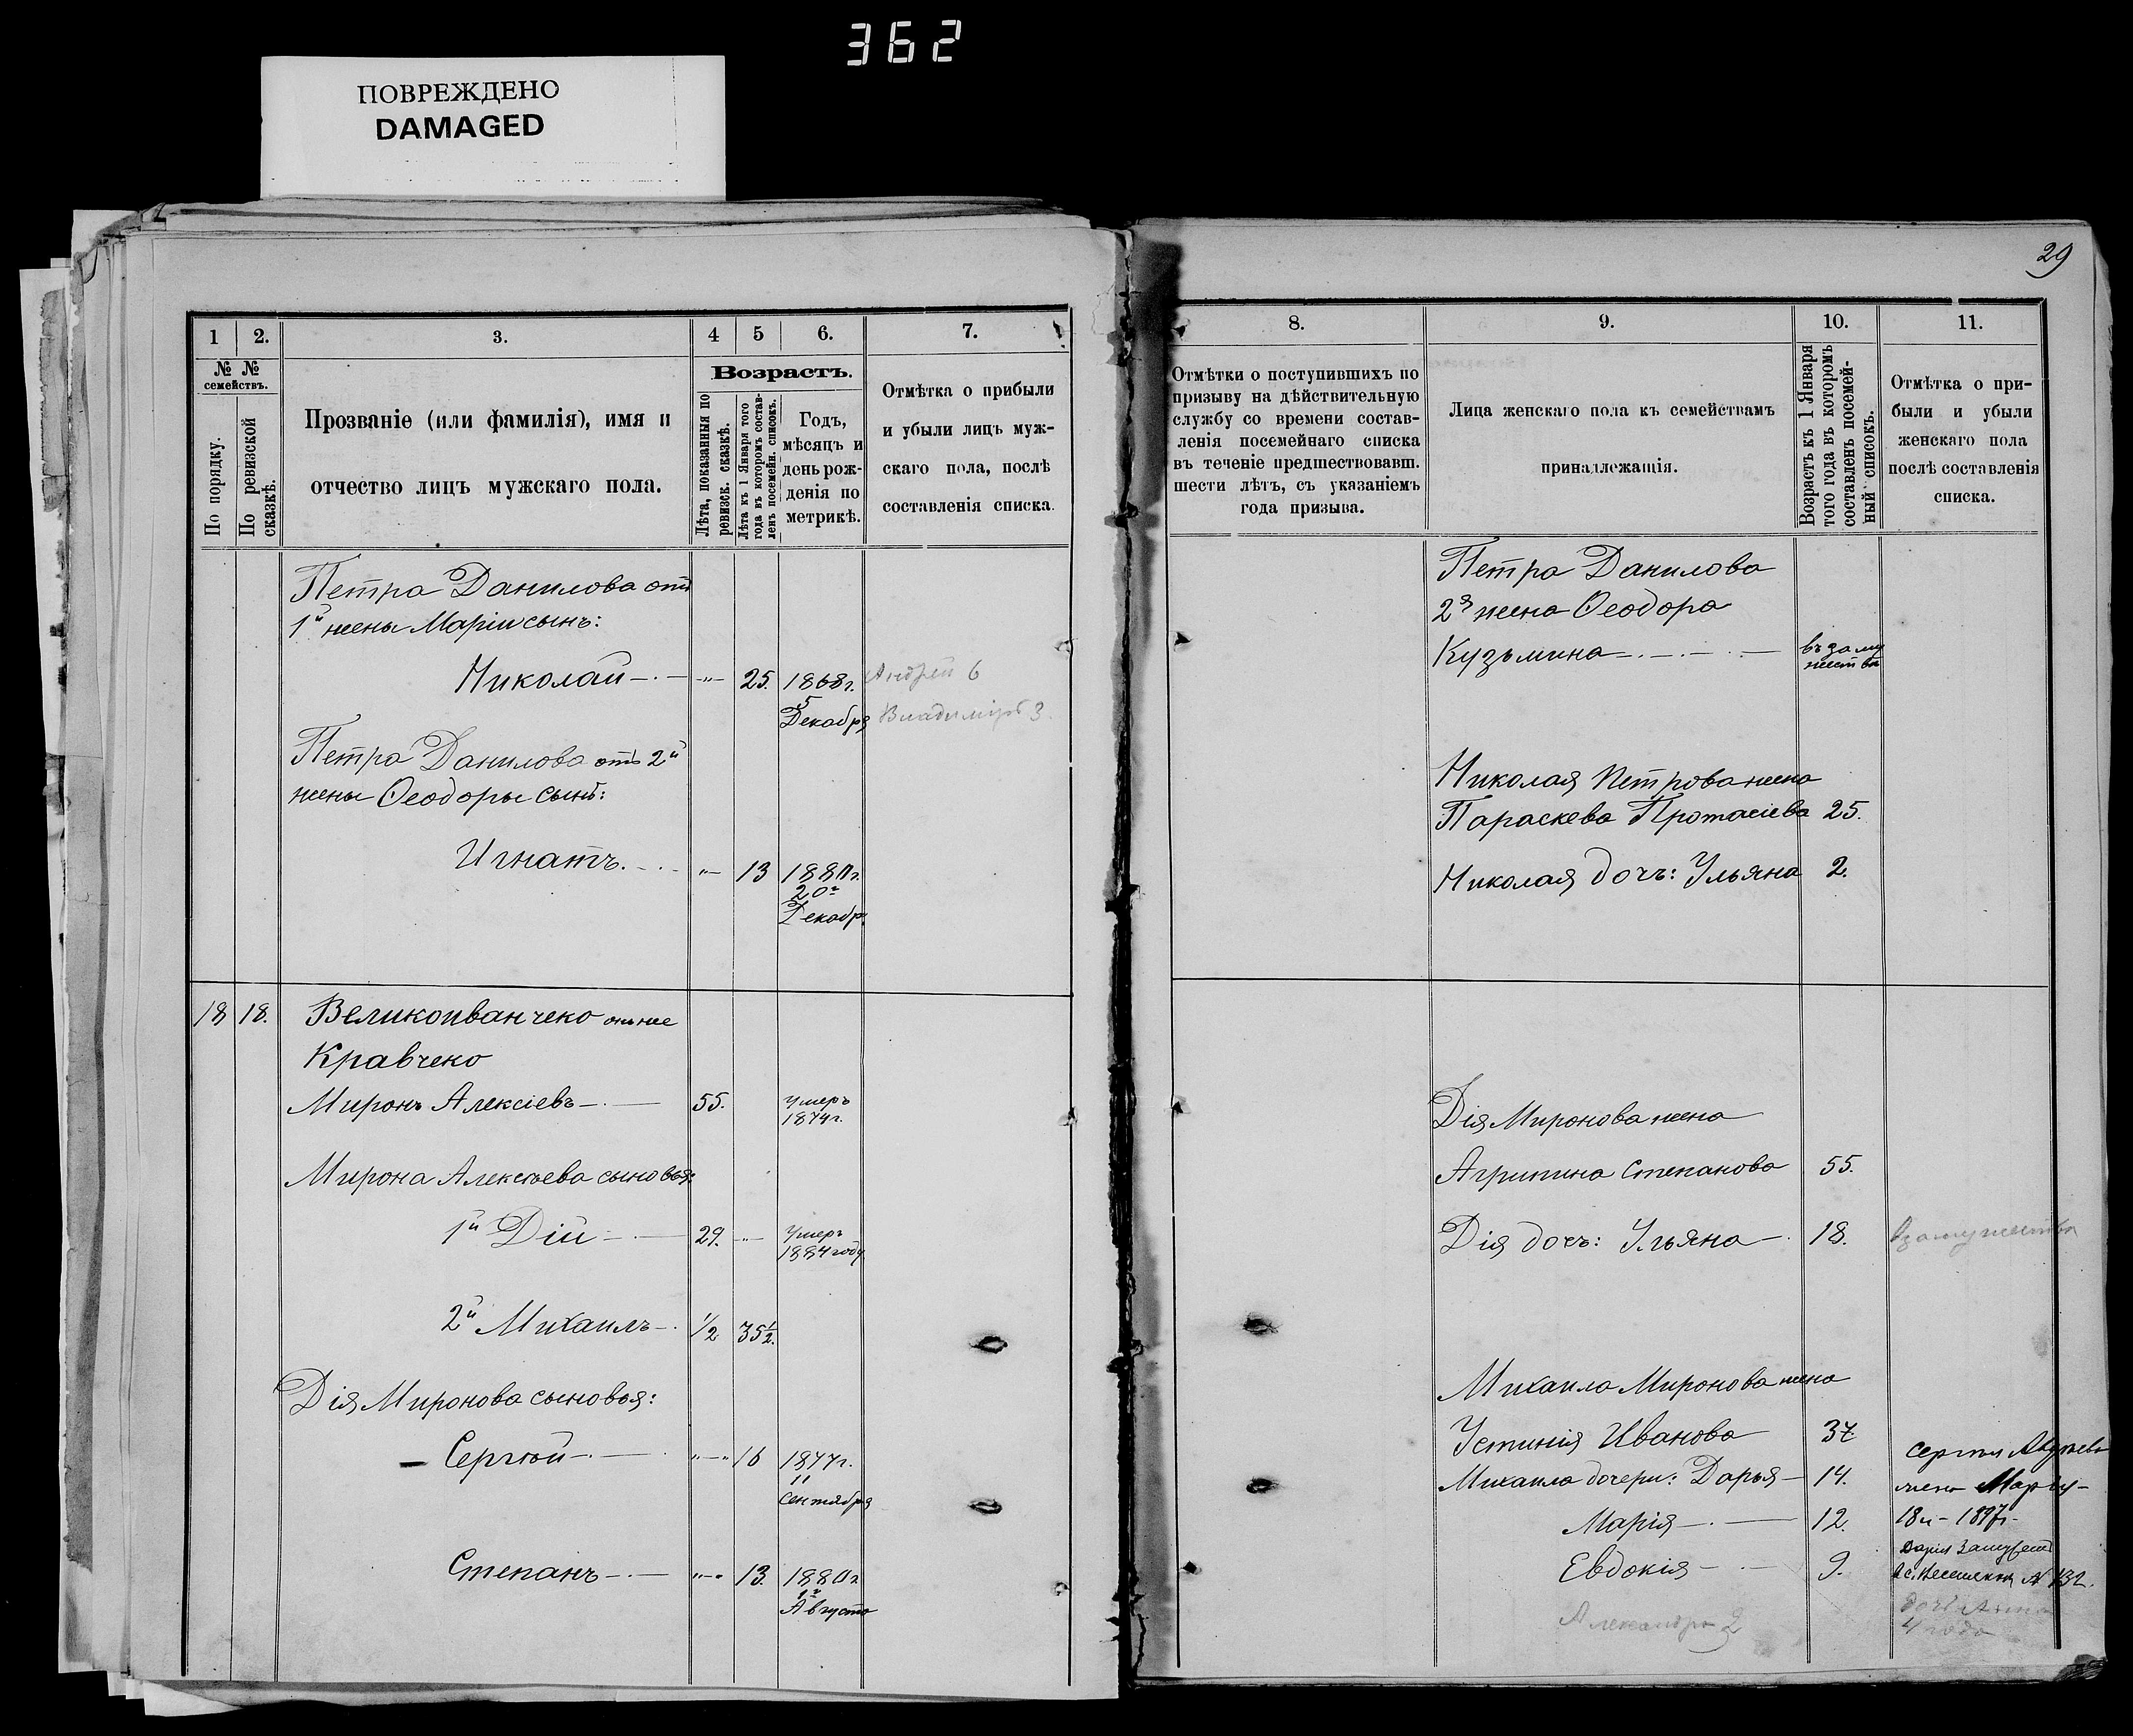 362
ПОВРЕЖДЕНО
DAMAGED
1
2.
3.
4
5
6.
7.
№ №
семействъ.
По порядку.
По ревизской сказкѣ.
Прозваніе (или фамилія), имя и
отчество лицъ мужскаго пола.
Возрастъ.
Лѣта, показанныя по
ревизск. сказкѣ.
Лѣта къ 1 Января того
года въ которомъ состав-
ленъ посемейн. списокъ.
Годъ,
мѣсяцъ и
день рож-
денія по
метрикѣ.
Отмѣтка о прибыли
и убыли лицъ муж-
скаго пола, послѣ
составленія списка.
Петра Данилова отъ
1й жены Маріи сынъ:
Николай — " — 25. 1868г.
5
Декабря
Андрей 6
Владиміръ 3.
Петра Данилова отъ 2й
жены Ѳеодоры сынъ:
Игнатъ. — " — 13 1880г.
20го
Декабр.
18 18. Великоиванченко онъ же
Кравченко
Миронъ Алексіевъ — 55. умеръ
1874г.
Мирона Алексѣева сыновья:
1й Дій — 29. — " — Умеръ
1884 году
2й Михаилъ — 1/2 35 1/2.
Дія Миронова сыновья:
— Сергѣй — " — " 16 1877г.
11
сентября
Степанъ — " — " 13. 1880г
1го
Августа
29
8.
9.
10.
11.
Отмѣтки о поступившихъ по
призыву на дѣйствительную
службу со времени состав-
ленія посемейнаго списка
въ теченіе предшествовавш.
шести лѣтъ, съ указаніемъ
года призыва.
Лица женскаго пола къ семействамъ
принадлежащія.
Возрастъ къ 1 Января
того года въ которомъ
составленъ посемей-
ный списокъ.
Отмѣтка о при-
были и убыли
женскаго пола
послѣ составленія
списка.
Петра Данилова
2я жена Ѳеодора
Кузьмина — въ заму
жества
Николая Петрова жена
Параскева Протасіева 25.
Николая дочь: Ульяна 2.
Дія Миронова жена
Агрипина Степанова 55.
Дія дочь: Ульяна — 18. Взамужества
Михаила Миронова жена
Устинія Иванова 37
Михаила дочери: Дарья — 14.
Марія — 12.
Евдокія — 9.
Александра 2
Сергѣя
жена
18 л - 1897г -
Дарія Замуже
№ 132.
дочь Анна
4 года